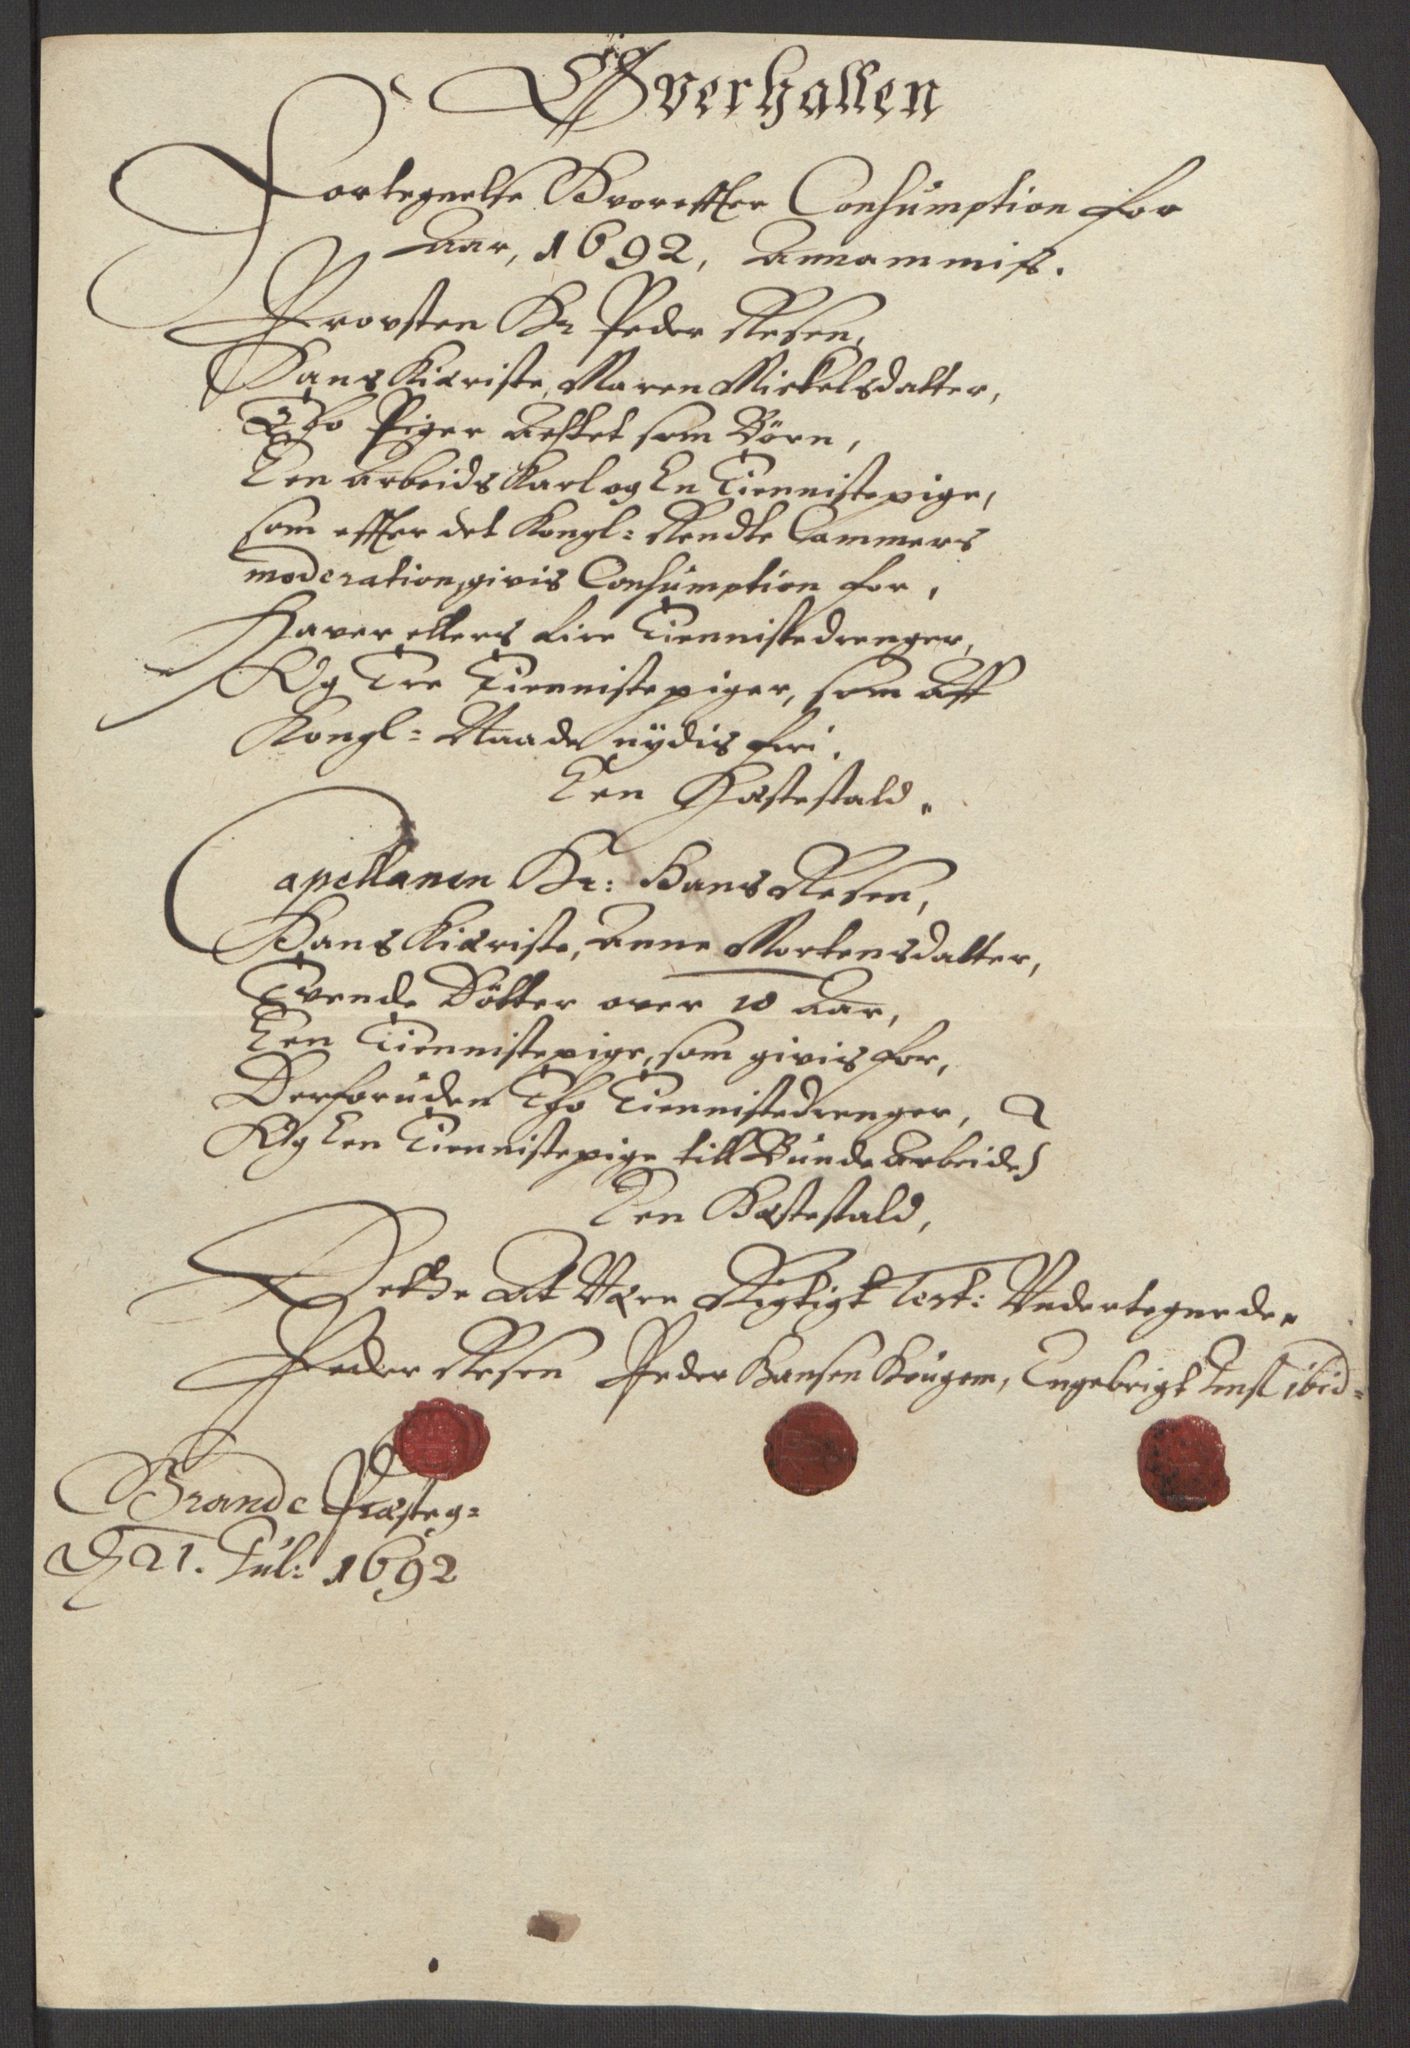 Øverhallen
Fortegnelse Hvorefter Consumption for
Aar, 1692, Annammis.
Provsten Hr Peder Resen,
Hans Kiæriste, Maren Mickelsdatter,
Tho Piger Actet som Børn,
Een Arbeids Karl og En Tiennistepige,
som efter det Kongl: Rendte Cammers
moderation, givis Consumption for,
Haver ellers Fire Tiennistedrenger,
Og Tre Tiennistepiger, som Aff
Kongl: Naade nÿdis fri.
Een Hæstestald.
Capellanen Hr: Hans Resen,
Hans Kiæriste, Anne Mortensdatter,
Tvende Døtter over 10 Aar,
Een Tiennistepige, som givis for,
Derforuden Tho Tiennistedrenger,
Og Een Tiennistepige till Bunde Arbeide
Een Hæstestald,
Dette At Være Rigtigt Test: Undertegnede.
Peder Resen Peder Hansen Haugem, Engebrigt ibid=
Grande Præsteg=
D 21. Jul: 1692